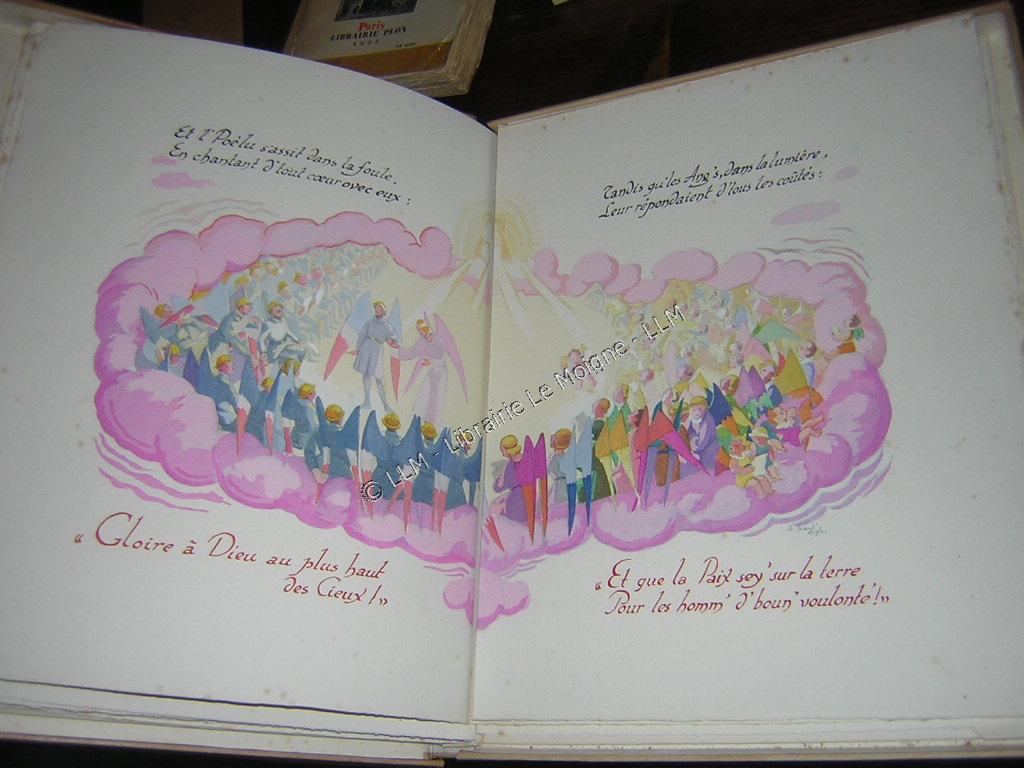 Paris
LIBRAIRIE PLON
Et l'Poèlu s'assit dans la foule,
En chantant d'tout cœur avec eux :
« Gloire à Dieu au plus haut
des Cieux ! »
Tandis qu'les Ang's, dans la lumière,
Leur répondaient d'tous les coûtés :
« Et que la Paix sey' sur la terre
Pour les homm' d'boun' voulonté ! »
© LLM - Librairie Le Moigne - LLM